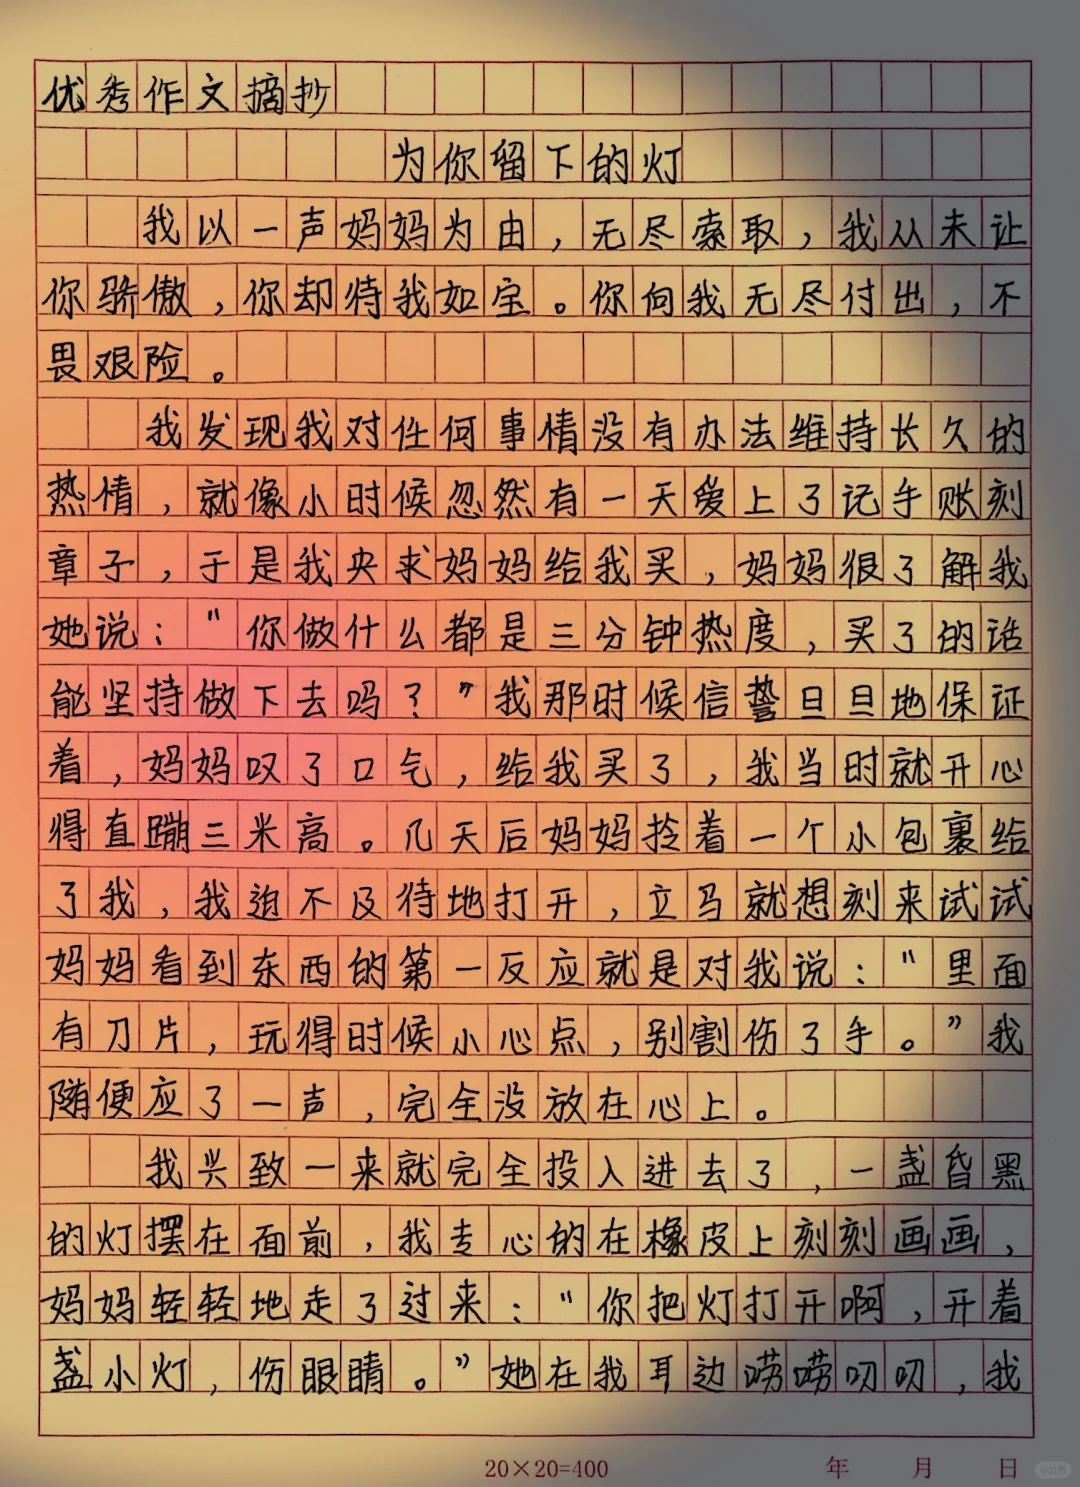 优秀作文摘抄
为你留下的灯
我以一声妈妈为由，无尽索取，我从未让
你骄傲，你却待我如宝。你向我无尽付出，不
畏艰险。
我发现我对任何事情没有办法维持长久的
热情，就像小时候忽然有一天爱上了记手账刻
章子，于是我央求妈妈给我买，妈妈很了解我
她说：“你做什么都是三分钟热度，买了的话
能坚持做下去吗？”我那时候信誓旦旦地保证
着，妈妈叹了口气，给我买了，我当时就开心
得直蹦三米高。几天后妈妈拎着一个小包裹给
了我，我迫不及待地打开，立马就想刻来试试
妈妈看到东西的第一反应就是对我说：“里面
有刀片，玩得时候小心点，别割伤了手。”我
随便应了一声，完全没放在心上。
我兴致一来就完全投入进去了，一盏昏黑
的灯摆在面前，我专心的在橡皮上刻刻画画，
妈妈轻轻地走了过来：“你把灯打开啊，开着
盏小灯，伤眼睛。”她在我耳边唠唠叨叨，我
20×20=400 年 月 日